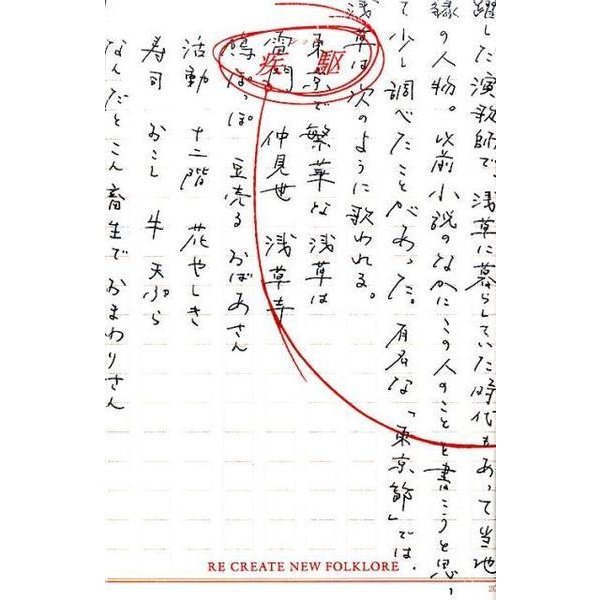 躍した演歌師で、浅草に暮らしていた時代もあって当地
縁の人物。以前小説のなかにこの人のことを書こうと思っ
て少し調べたことがあった。有名な「東京節」では、
浅草は次のように歌われる。
東京で繁華な浅草は
雷門 仲見世 浅草寺
鳩ぽっぽ 豆売る おばあさん
活動 十二階 花やしき
寿司 おこし 牛 天ぷら
なんだとこん畜生で おまわりさん
疾駆
RE CREATE NEW FOLKLORE